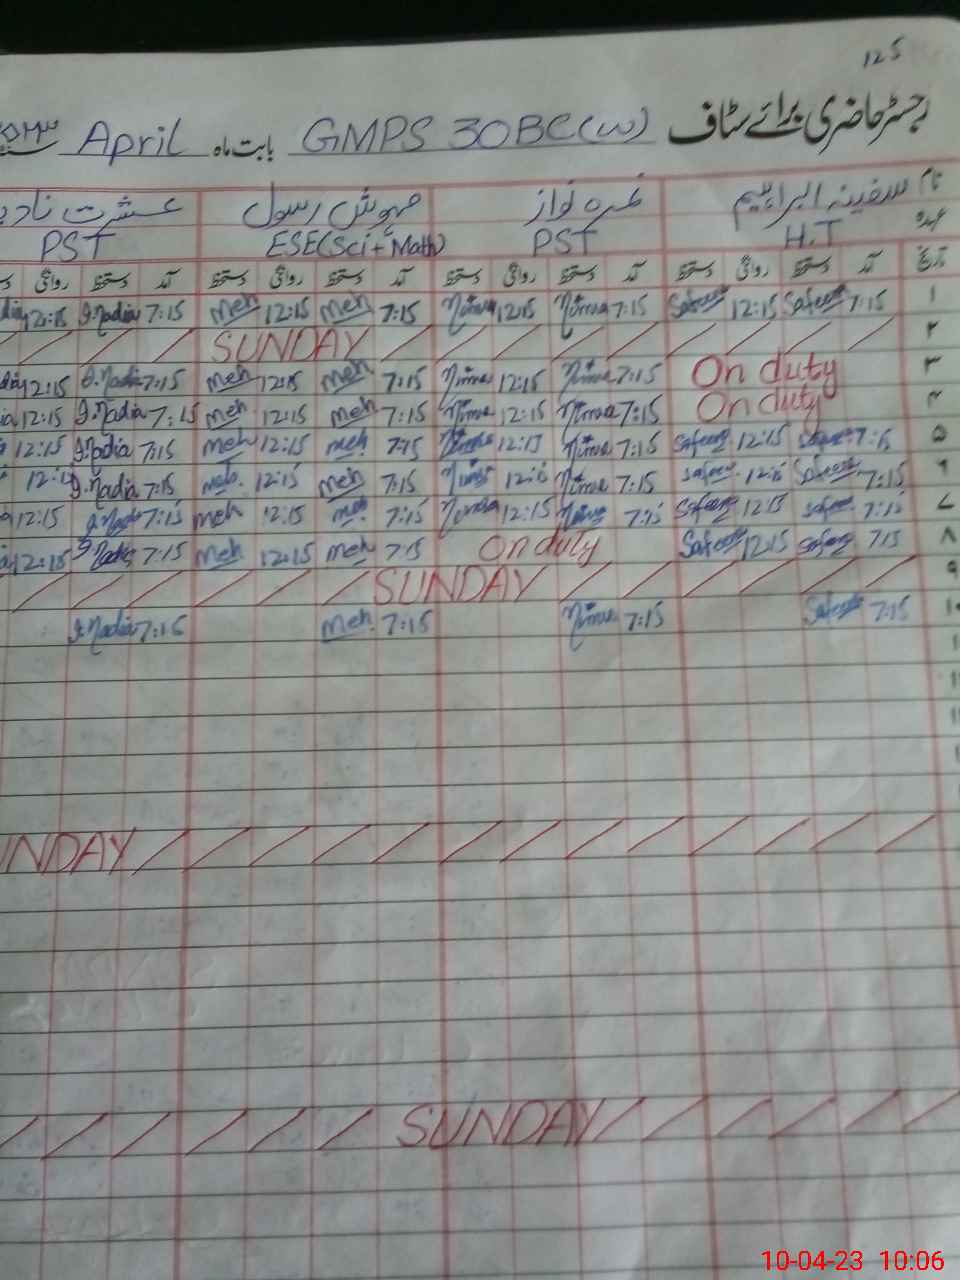 125
رجسٹر حاضری برائے سٹاف GMPS 30BC(W) بابت ماہ April
نام سفینہ ابراہیم نمرہ نواز مہوش رسول عشرت
عہدہ H.T PST ESE(Sci+Math) PST
تاریخ آمد دستخط روانگی دستخط آمد دستخط روانگی دستخط آمد دستخط روانگی دستخط آمد دستخط روانگی
۱ 7:15 Safeena 12:15 Safeena 7:15 Nimra 12:15 Nimra 7:15 Meh 12:15 Meh 7:15 I.Nadia 12:15
۲ SUNDAY
۳ On duty 7:15 Nimra 12:15 Nimra 7:15 Meh 12:15 Meh 7:15 I.Nadia 12:15
۴ On duty 7:15 Nimra 12:15 Nimra 7:15 Meh 12:15 Meh 7:15 I.Nadia 12:15
۵ 7:15 Safeena 12:15 Safeena 7:15 Nimra 12:15 Nimra 7:15 Meh 12:15 Meh 7:15 I.Nadia 12:15
۶ 7:15 Safeena 12:15 Safeena 7:15 Nimra 12:15 Nimra 7:15 Meh 12:15 Meh 7:15 I.Nadia 12:15
۷ 7:15 Safeena 12:15 Safeena 7:15 Nimra 12:15 Nimra 7:15 Meh 12:15 Meh 7:15 I.Nadia 12:15
۸ 7:15 Safeena 12:15 Safeena On duty 7:15 Meh 12:15 Meh 7:15 I.Nadia 12:15
۹ SUNDAY
۱۰ 7:15 Safeena 7:15 Nimra 7:15 Meh 7:15 I.Nadia
UNDAY
SUNDAY
10-04-23 10:06